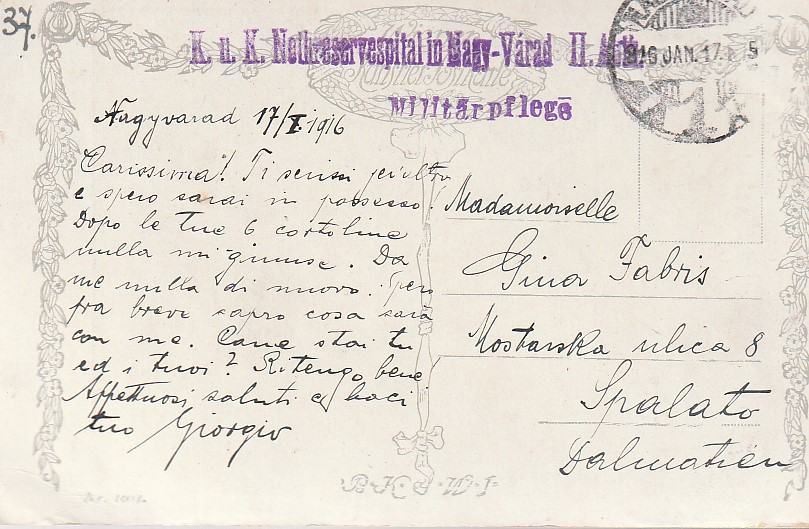 37.
K. u. K. Notreservespital in Nagy-Várad II. Abt.
Militärpflege
916 JAN. 17.
Nagyvarad 17/I. 1916
Carissima! Ti scrissi jeri l'altro
e spero sarai in possesso!
Dopo le tue 6 cartoline
nulla mi giunse. Da
me nulla di nuovo. Spero
fra breve sapro cosa sarà
con me. Come stai tu
ed i tuoi? Ritengo bene
Affettuosi saluti e baci
tuo Giorgio
Madamoiselle
Gina Fabris
Mostarska ulica 8
Spalato
Dalmatien
B.K.W.I.